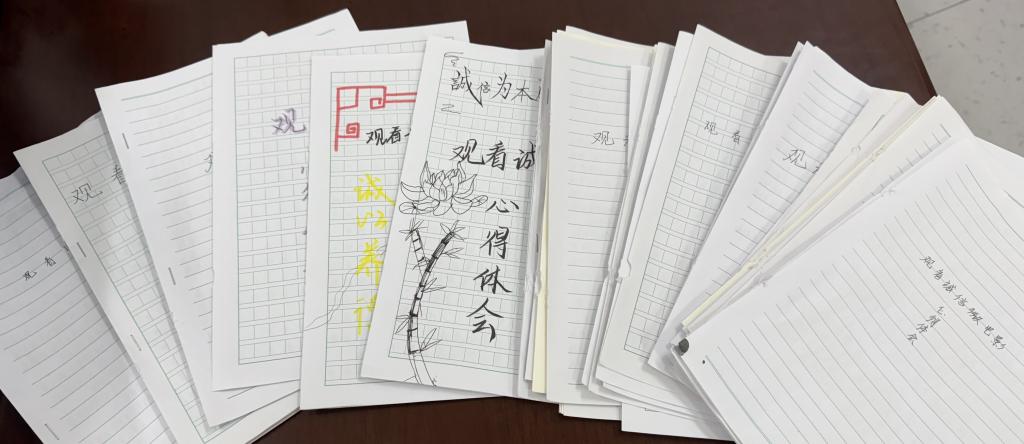 观看
观看
观
观看
诚以养
誠信为本
观看诚
心得体会
观
观看
观
观看诚信微电影
心得体会